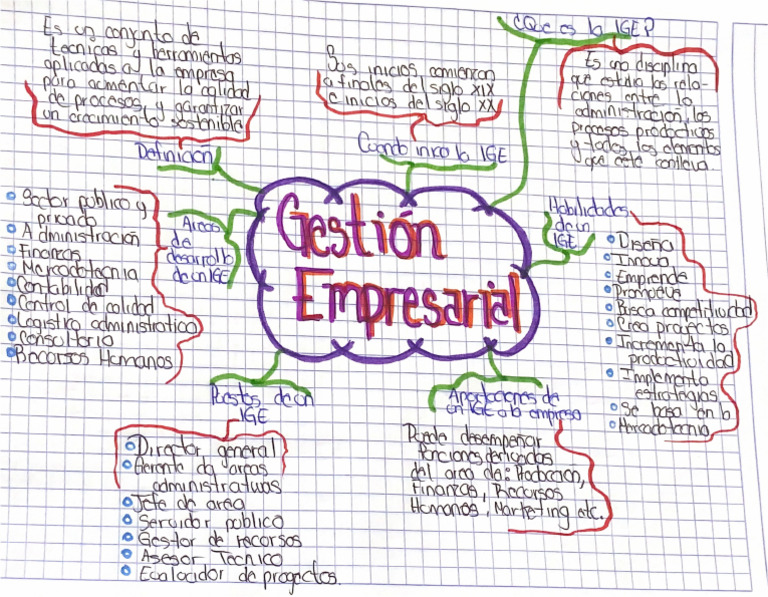 Es un conjunto de
tecnicas y herramientas
aplicadas a la empresa
para aumentar la calidad
de procesos, y garantizar
un crecimiento sostenible
Definición
Sus inicios, comienzan
a finales del siglo XIX
e inicios del siglo XX
Cuando inicio la IGE
¿Que es la IGE?
Es una disciplina
que estudia las rela-
ciones entre la
administración, los
procesos productivos
y todos los elementos
que este conlleva.
Gestión
Empresarial
Areas
de
desarrollo
de un IGE
Sector publico y
privado
Administración
Finanzas
Mercadotecnia
Contabilidad
Control de calidad
Logistica administrativa
Consultorio
Recursos Humanos
Habilidades
de un
IGE
Diseña
Innova
Emprende
Promueve
Busca competitividad
Crea proyectos
Incrementa la
productividad
Implementa
estrategias
Se basa en la
Mercadotecnia
Puestos de un
IGE
Director general
Gerente de areas
administrativas
Jefe de area
Servidor publico
Gestor de recursos
Asesor Tecnico
Evaluador de proyectos.
Aportaciones de
un IGE a la empresa
Puede desempeñar
funciones derivadas
del area de: Produccion,
Finanzas, Recursos
Humanos, Marketing etc.